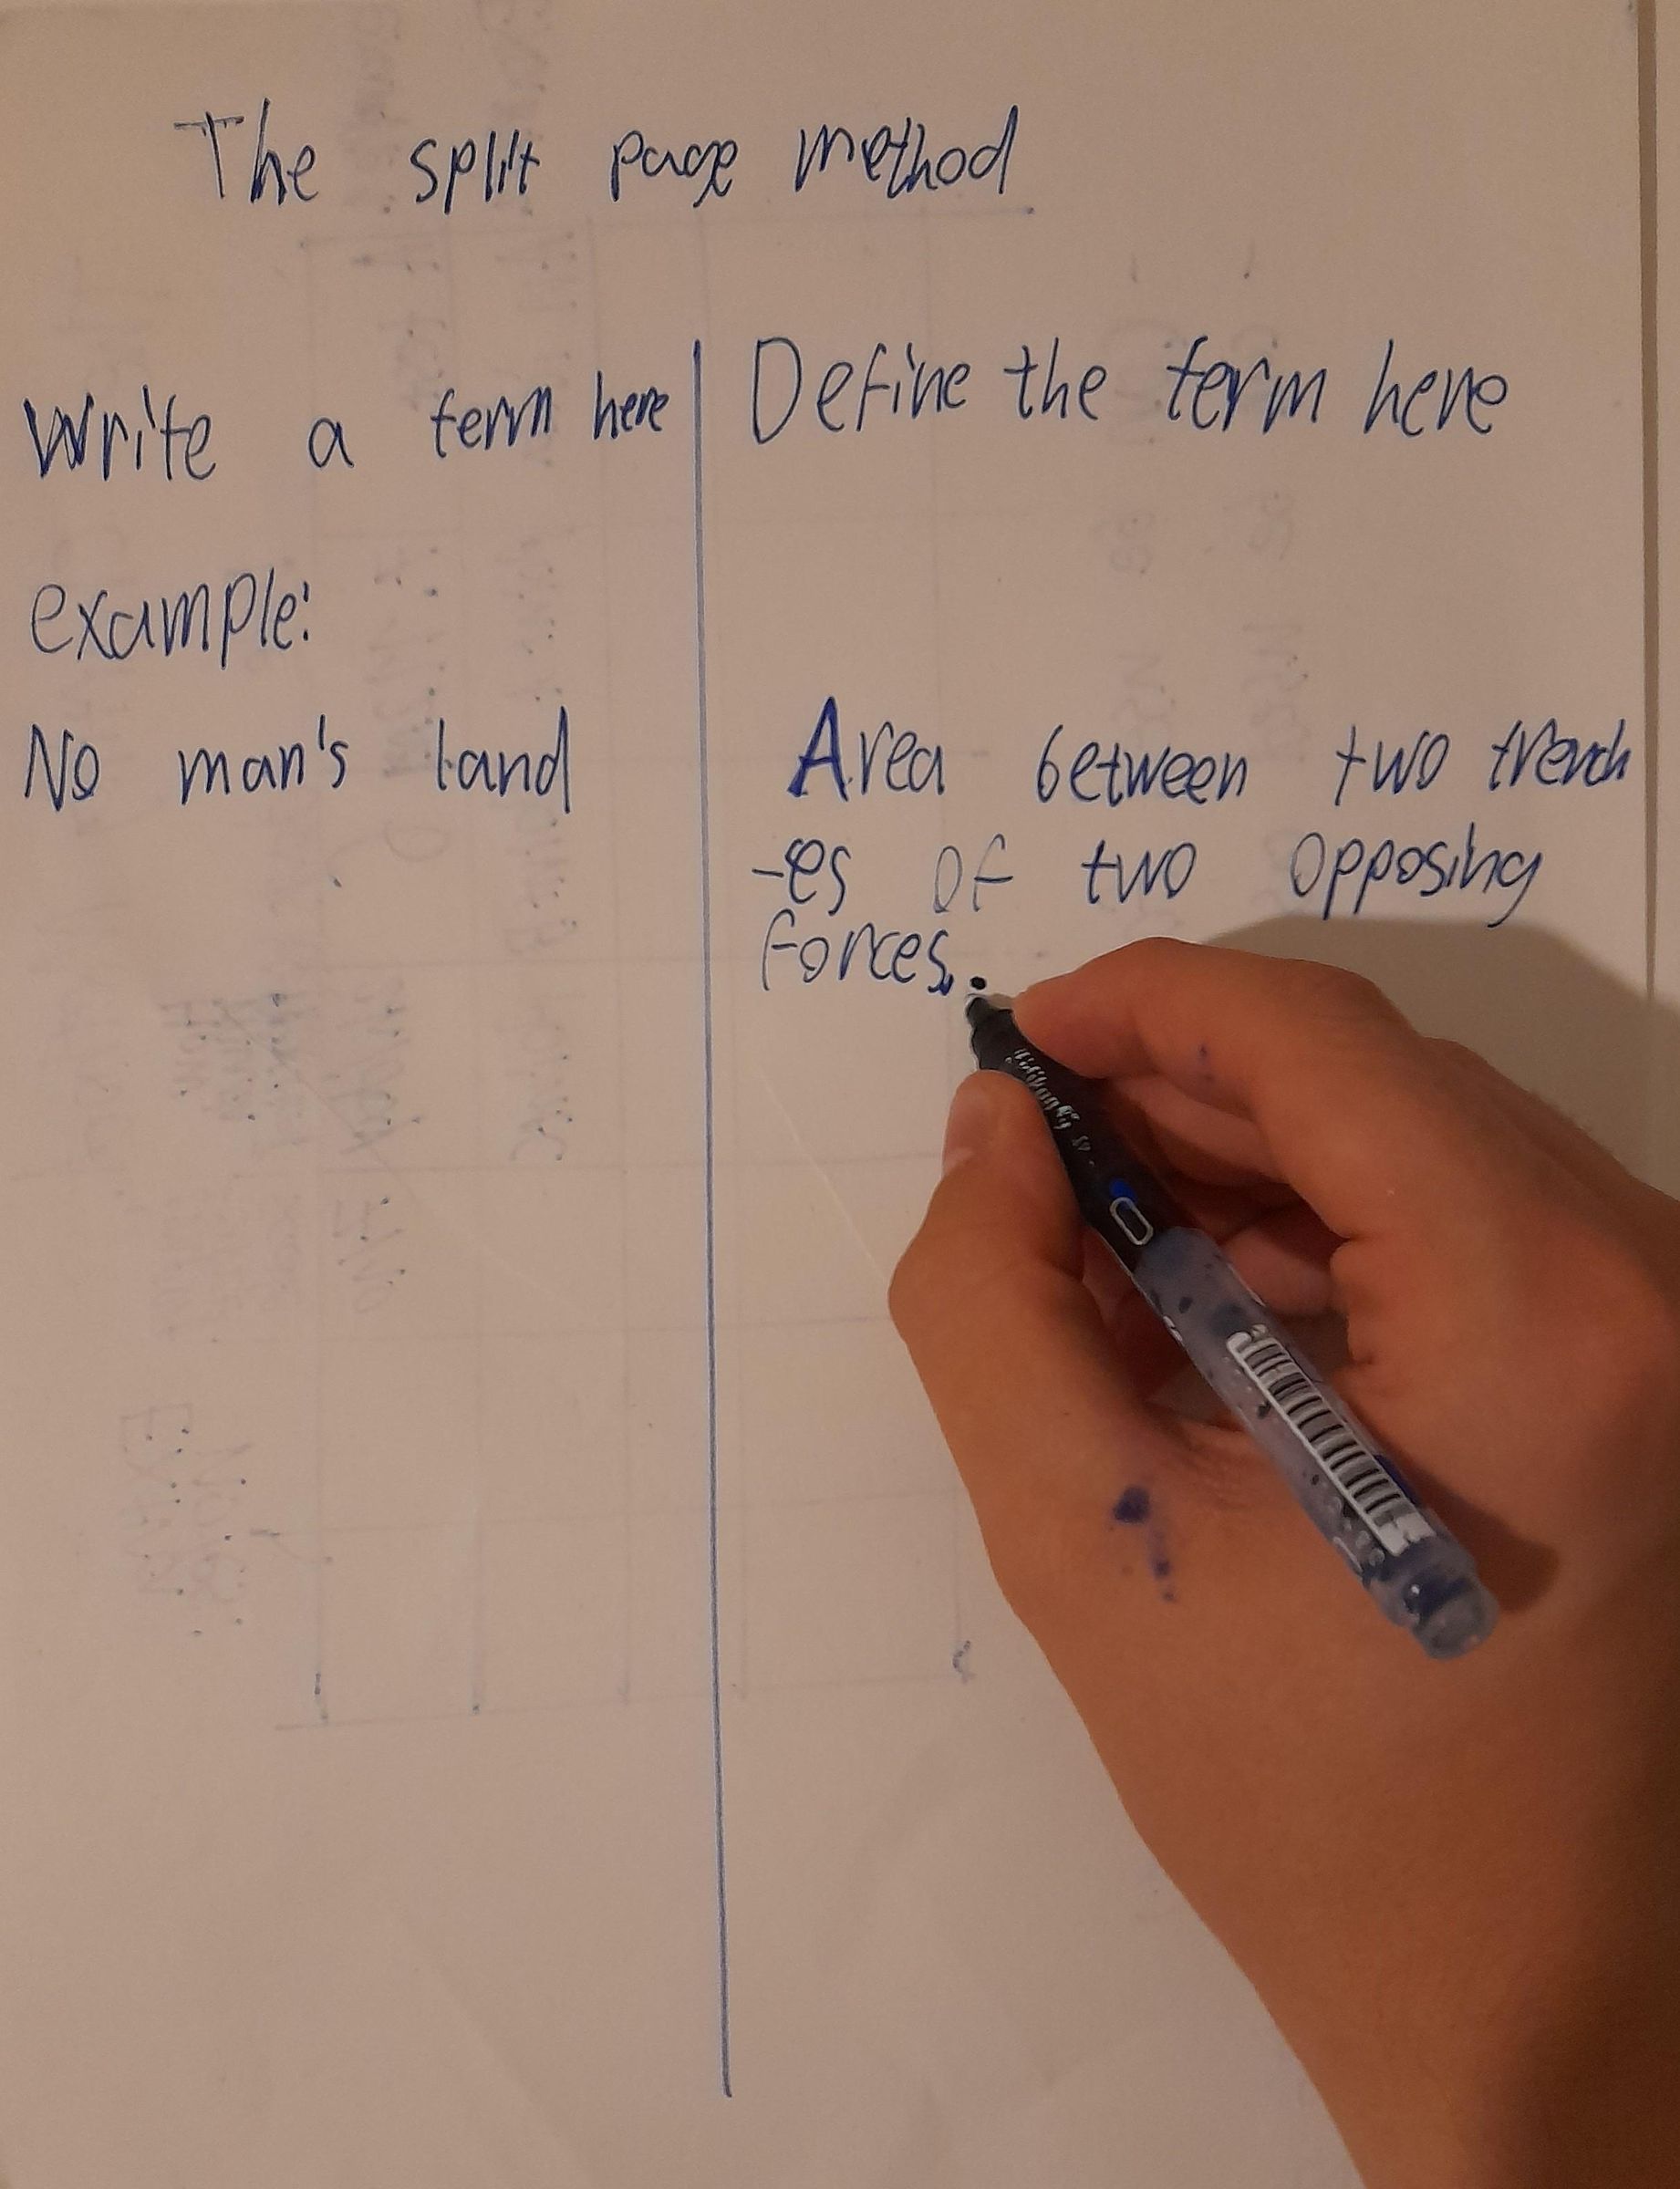 The split page method
Write a term here
Define the term here
example:
No man's land
Area between two trench
-es of two opposing
forces.